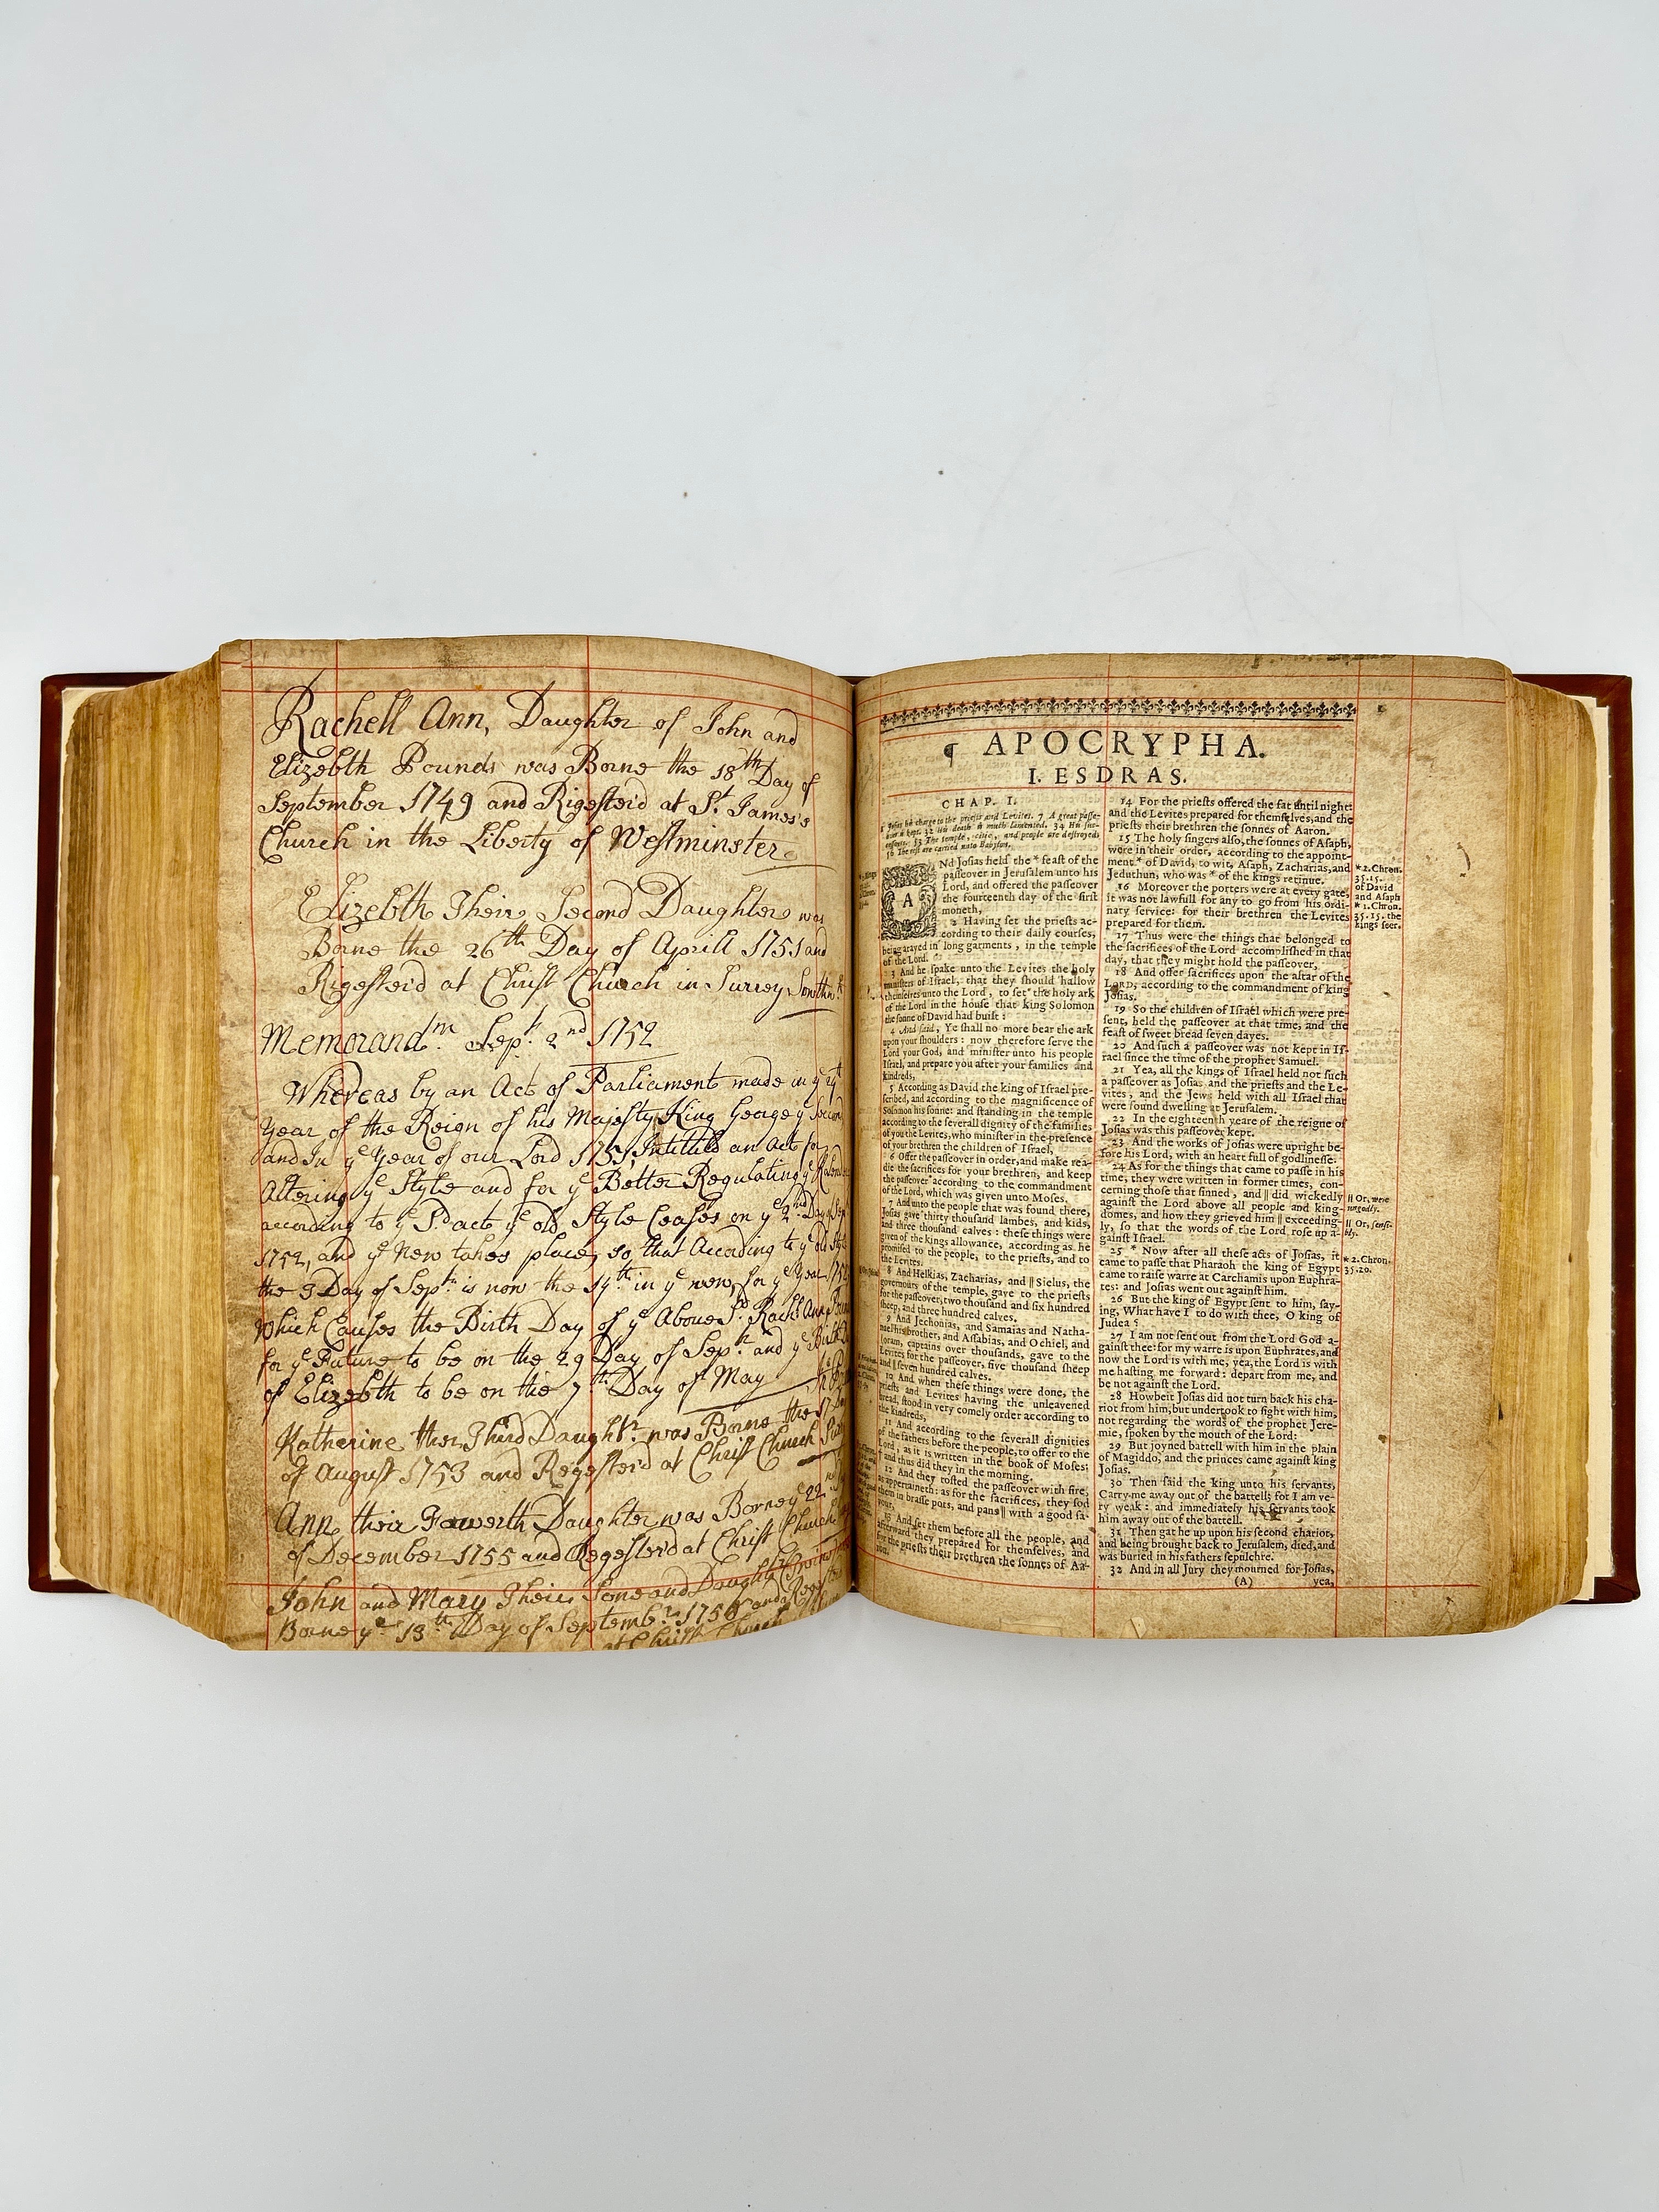 Rachell Ann, Daughter of John and
Elizebth Pounds was Borne the 18th Day of
September 1749 and Rigesterd at St. James's
Church in the Liberty of Westminster
Elizebth Their Second Daughter was
Borne the 26th Day of Aprill 1751 and
Rigesterd at Christ Church in Surrey
Memorandm. Sepr. 2nd 1752
Whereas by an Act of Parliament made in ye
Year of the Reign of his Majesty King George ye Second
and In ye Year of our Lord 1751, Intitled an Act for
Altering ye Style and for ye Better Regulating ye
according to ye Sd. acts ye old Style Ceases on ye 2nd Day of Sepr
1752, and ye New takes place, so that According to ye old Style
the 3 Day of Sepr. is now the 14th in ye new for ye Year 1752
Which Causes the Birth Day of ye Above Sd. Rachl. Ann
for ye Future to be on the 29 Day of Sepr. and ye
of Elizebth to be on the 7th Day of May
Katherine ther Third Daughtr. was Borne the 17
of August 1753 and Regesterd at Christ Church
Ann their Fowerth Daughter was Borne ye 22
of December 1755 and Regesterd at Christ Church
John and Mary Their Sone and Daughtr
Borne ye 13th Day of Septembr. 1756 and
at Christ Church
¶ APOCRYPHA.
I. ESDRAS.
CHAP. I.
1 Josias his charge to the priests and Levites. 7 A great passe-
over is kept. 32 His death is much lamented. 34 His suc-
cessours. 53 The temple, citie, and people are destroyed.
56 The rest are carried unto Babylon.
ANd Josias held the * feast of the
passeover in Jerusalem unto his
Lord, and offered the passeover
the fourteenth day of the first
moneth,
2 Having set the priests ac-
cording to their daily courses,
being arayed in long garments, in the temple
of the Lord.
3 And he spake unto the Levites the holy
ministers of Israel, that they should hallow
themselves unto the Lord, to set the holy ark
of the Lord in the house that king Solomon
the sonne of David had built:
4 And said, Ye shall no more bear the ark
upon your shoulders: now therefore serve the
Lord your God, and minister unto his people
Israel, and prepare you after your families and
kindreds,
5 According as David the king of Israel pre-
scribed, and according to the magnificence of
Solomon his sonne: and standing in the temple
according to the severall dignity of the families
of you the Levites, who minister in the presence
of your brethren the children of Israel,
6 Offer the passeover in order, and make rea-
die the sacrifices for your brethren, and keep
the passeover according to the commandment
of the Lord, which was given unto Moses.
7 And unto the people that was found there,
Josias gave thirty thousand lambes, and kids,
and three thousand calves: these things were
given of the kings allowance, according as he
promised to the people, to the priests, and to
the Levites.
8 And Helkias, Zacharias, and || Sielus, the
governours of the temple, gave to the priests
for the passeover, two thousand and six hundred
sheep, and three hundred calves.
9 And Jechonias, and Samaias and Natha-
nael his brother, and Assabias, and Ochiel, and
Joram, captains over thousands, gave to the
Levites for the passeover, five thousand sheep
and seven hundred calves.
10 And when these things were done, the
priests and Levites having the unleavened
bread, stood in very comely order according to
the kindreds,
11 And according to the severall dignities
of the fathers before the people, to offer to the
Lord, as it is written in the book of Moses:
and thus did they in the morning.
12 And they rosted the passeover with fire,
as appertaineth: as for the sacrifices, they sod
them in brasse pots, and pans || with a good sa-
vour,
13 And set them before all the people, and
afterward they prepared for themselves, and
for the priests their brethren the sonnes of Aa-
ron.
14 For the priests offered the fat until night:
and the Levites prepared for themselves, and the
priests their brethren the sonnes of Aaron.
15 The holy singers also, the sonnes of Asaph,
were in their order, according to the appoint-
ment * of David, to wit, Asaph, Zacharias, and
Jeduthun, who was * of the kings retinue.
16 Moreover the porters were at every gate;
it was not lawfull for any to go from his ordi-
nary service: for their brethren the Levites
prepared for them.
17 Thus were the things that belonged to
the sacrifices of the Lord accomplished in that
day, that they might hold the passeover,
18 And offer sacrifices upon the altar of the
LORD, according to the commandment of king
Josias.
19 So the children of Israel which were pre-
sent, held the passeover at that time, and the
feast of sweet bread seven dayes.
20 And such a passeover was not kept in Is-
rael since the time of the prophet Samuel.
21 Yea, all the kings of Israel held not such
a passeover as Josias and the priests and the Le-
vites, and the Jews held with all Israel that
were found dwelling at Jerusalem.
22 In the eighteenth yeare of the reigne of
Josias was this passeover kept.
23 And the works of Josias were upright be-
fore his Lord, with an heart full of godlinesse.
24 As for the things that came to passe in his
time, they were written in former times, con-
cerning those that sinned, and || did wickedly
against the Lord above all people and king-
domes, and how they grieved him || exceeding-
ly, so that the words of the Lord rose up a-
gainst Israel.
25 * Now after all these acts of Josias, it
came to passe that Pharaoh the king of Egypt
came to raise warre at Carchamis upon Euphra-
tes: and Josias went out against him.
26 But the king of Egypt sent to him, say-
ing, What have I to do with thee, O king of
Judea?
27 I am not sent out from the Lord God a-
gainst thee: for my warre is upon Euphrates, and
now the Lord is with me, yea, the Lord is with
me hasting me forward: depart from me, and
be not against the Lord.
28 Howbeit Josias did not turn back his cha-
riot from him, but undertook to fight with him,
not regarding the words of the prophet Jere-
mie, spoken by the mouth of the Lord:
29 But joyned battell with him in the plain
of Magiddo, and the princes came against king
Josias.
30 Then said the king unto his servants,
Carry me away out of the battell; for I am ve-
ry weak: and immediately his servants took
him away out of the battell.
31 Then gat he up upon his second chariot,
and being brought back to Jerusalem, died, and
was buried in his fathers sepulchre.
32 And in all Jury they mourned for Josias,
(A) yea,
* 2. Chron.
35.15.
of David
and Asaph
* 1. Chron.
35.15. the
kings seer.
|| Or, were
ungodly.
|| Or, sensi-
bly.
* 2. Chron.
35.20.